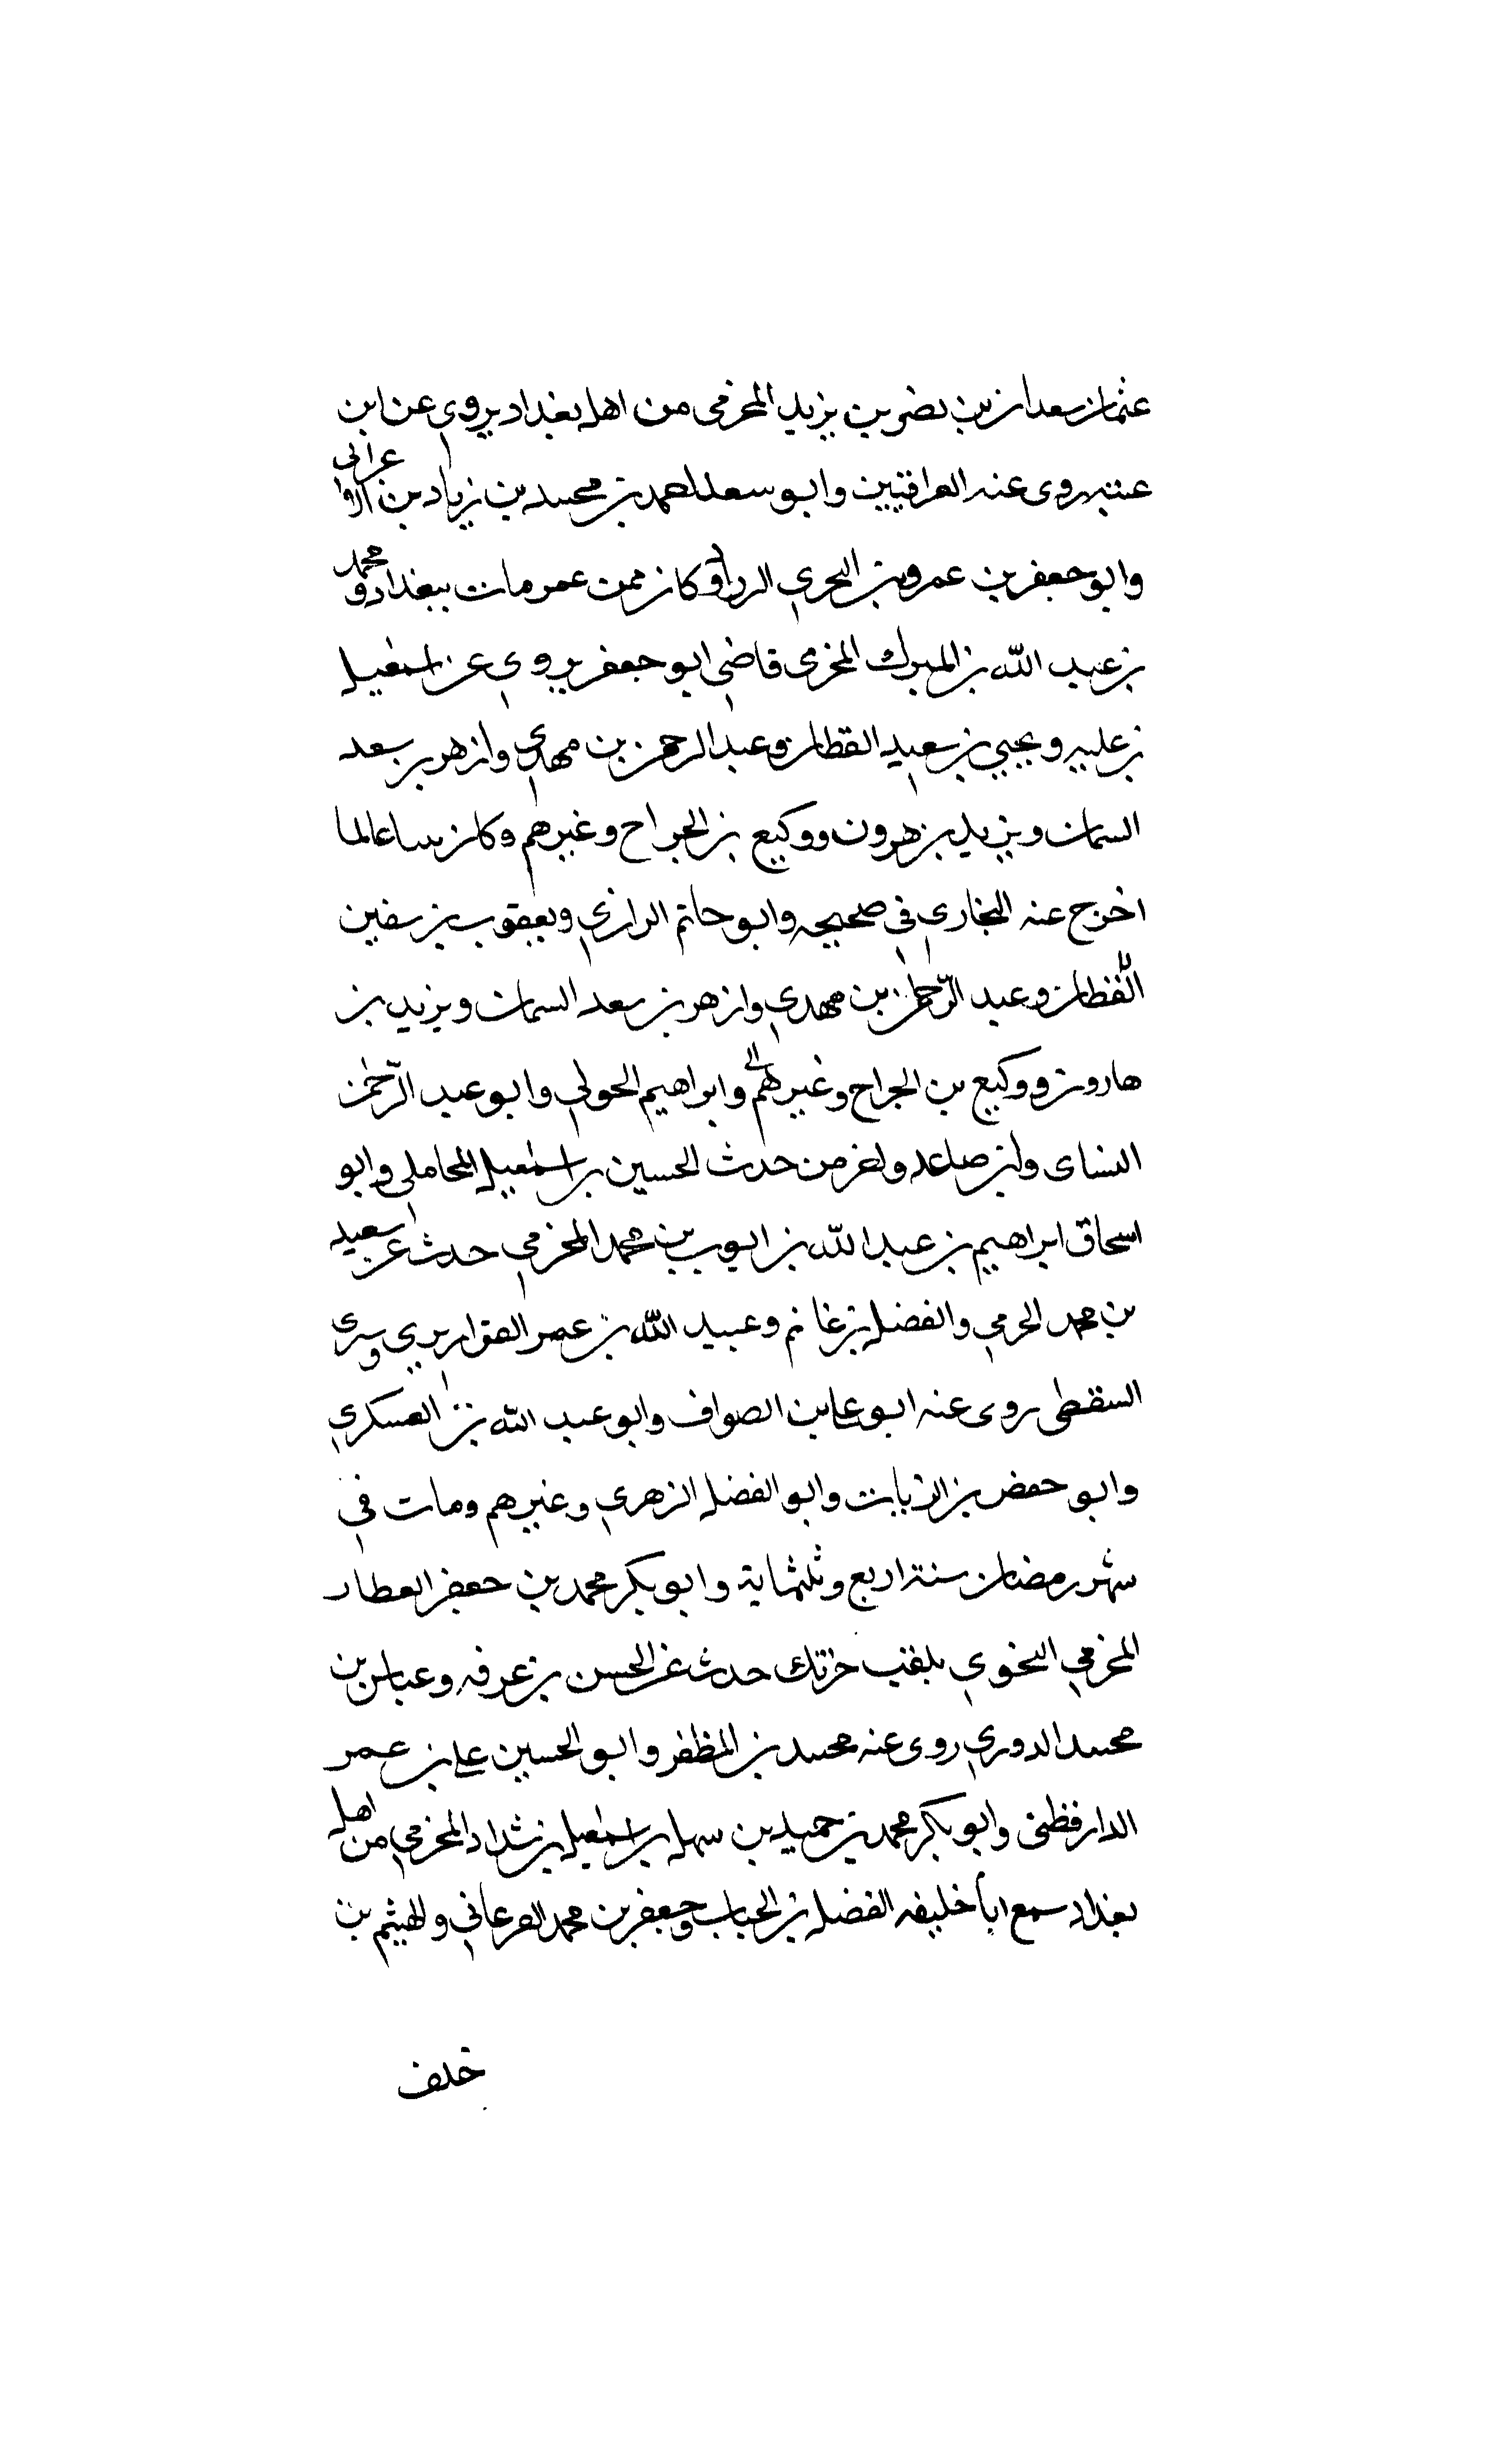 عثمان سعدان بن نصر بن يزيد المخرمى من اهل بغداد يروى عن ابن
عيينه روى عنه العراقيين وابو سعد احمد بن محمد بن زياد بن الاعرابى
وابو جعفر بن عمرو بن البحرى الرزاز وكان ممن عمر مات ببغداد و محمد
بن عبد الله بن المبرك المخرمى قاضى ابو جعفر يروى عن اسمعيل
بن عليه ويحيي بن سعيد القطان وعبد الرحمن بن مهدى وازهر بن سعد
السمان ويزيد بن هرون ووكيع بن الجراح وغيرهم وكان عالما
اخرج عنه البخارى فى صحيحه وابو حاتم الرازى ويعقوب بن سفين
القطان وعبد الرحمن بن مهدى وازهر بن سعد السمان ويزيد بن
هارون ووكيع بن الجراح وغيرهم وابراهيم الحولى وابو عبد الرحمن
النساى وابن صاعد واخر من حدث الحسين بن اسمعيل المحاملى وابو
اسحاق ابراهيم بن عبد الله بن ايوب بن محمد المخرمى حدث عن سعيد
بن محمد الجرمى والفضل بن غانم وعبيد الله بن عمر القواريرى وسرى
السقطى روى عنه ابو على بن الصواف وابو عبد الله بن العسكرى
وابو حفص بن الزيات وابو الفضل الزهرى وغيرهم ومات فى
شهر رمضان سنة اربع وثلثماية وابو بكر محمد بن جعفر العطار
المخرمى النحوى يلقب خرتك حدث عن الحسن بن عرفه وعباس بن
محمد الدورى روى عنه محمد بن المظفر وابو الحسين على بن عمر
الدارقطنى وابو بكر محمد بن حميد بن سهل بن اسمعيل بن شداد المخرمى من اهل
بغداد سمع ابا خليفه الفضل بن الحباب وجعفر بن محمد الفرعانى والهيثم بن
خلف